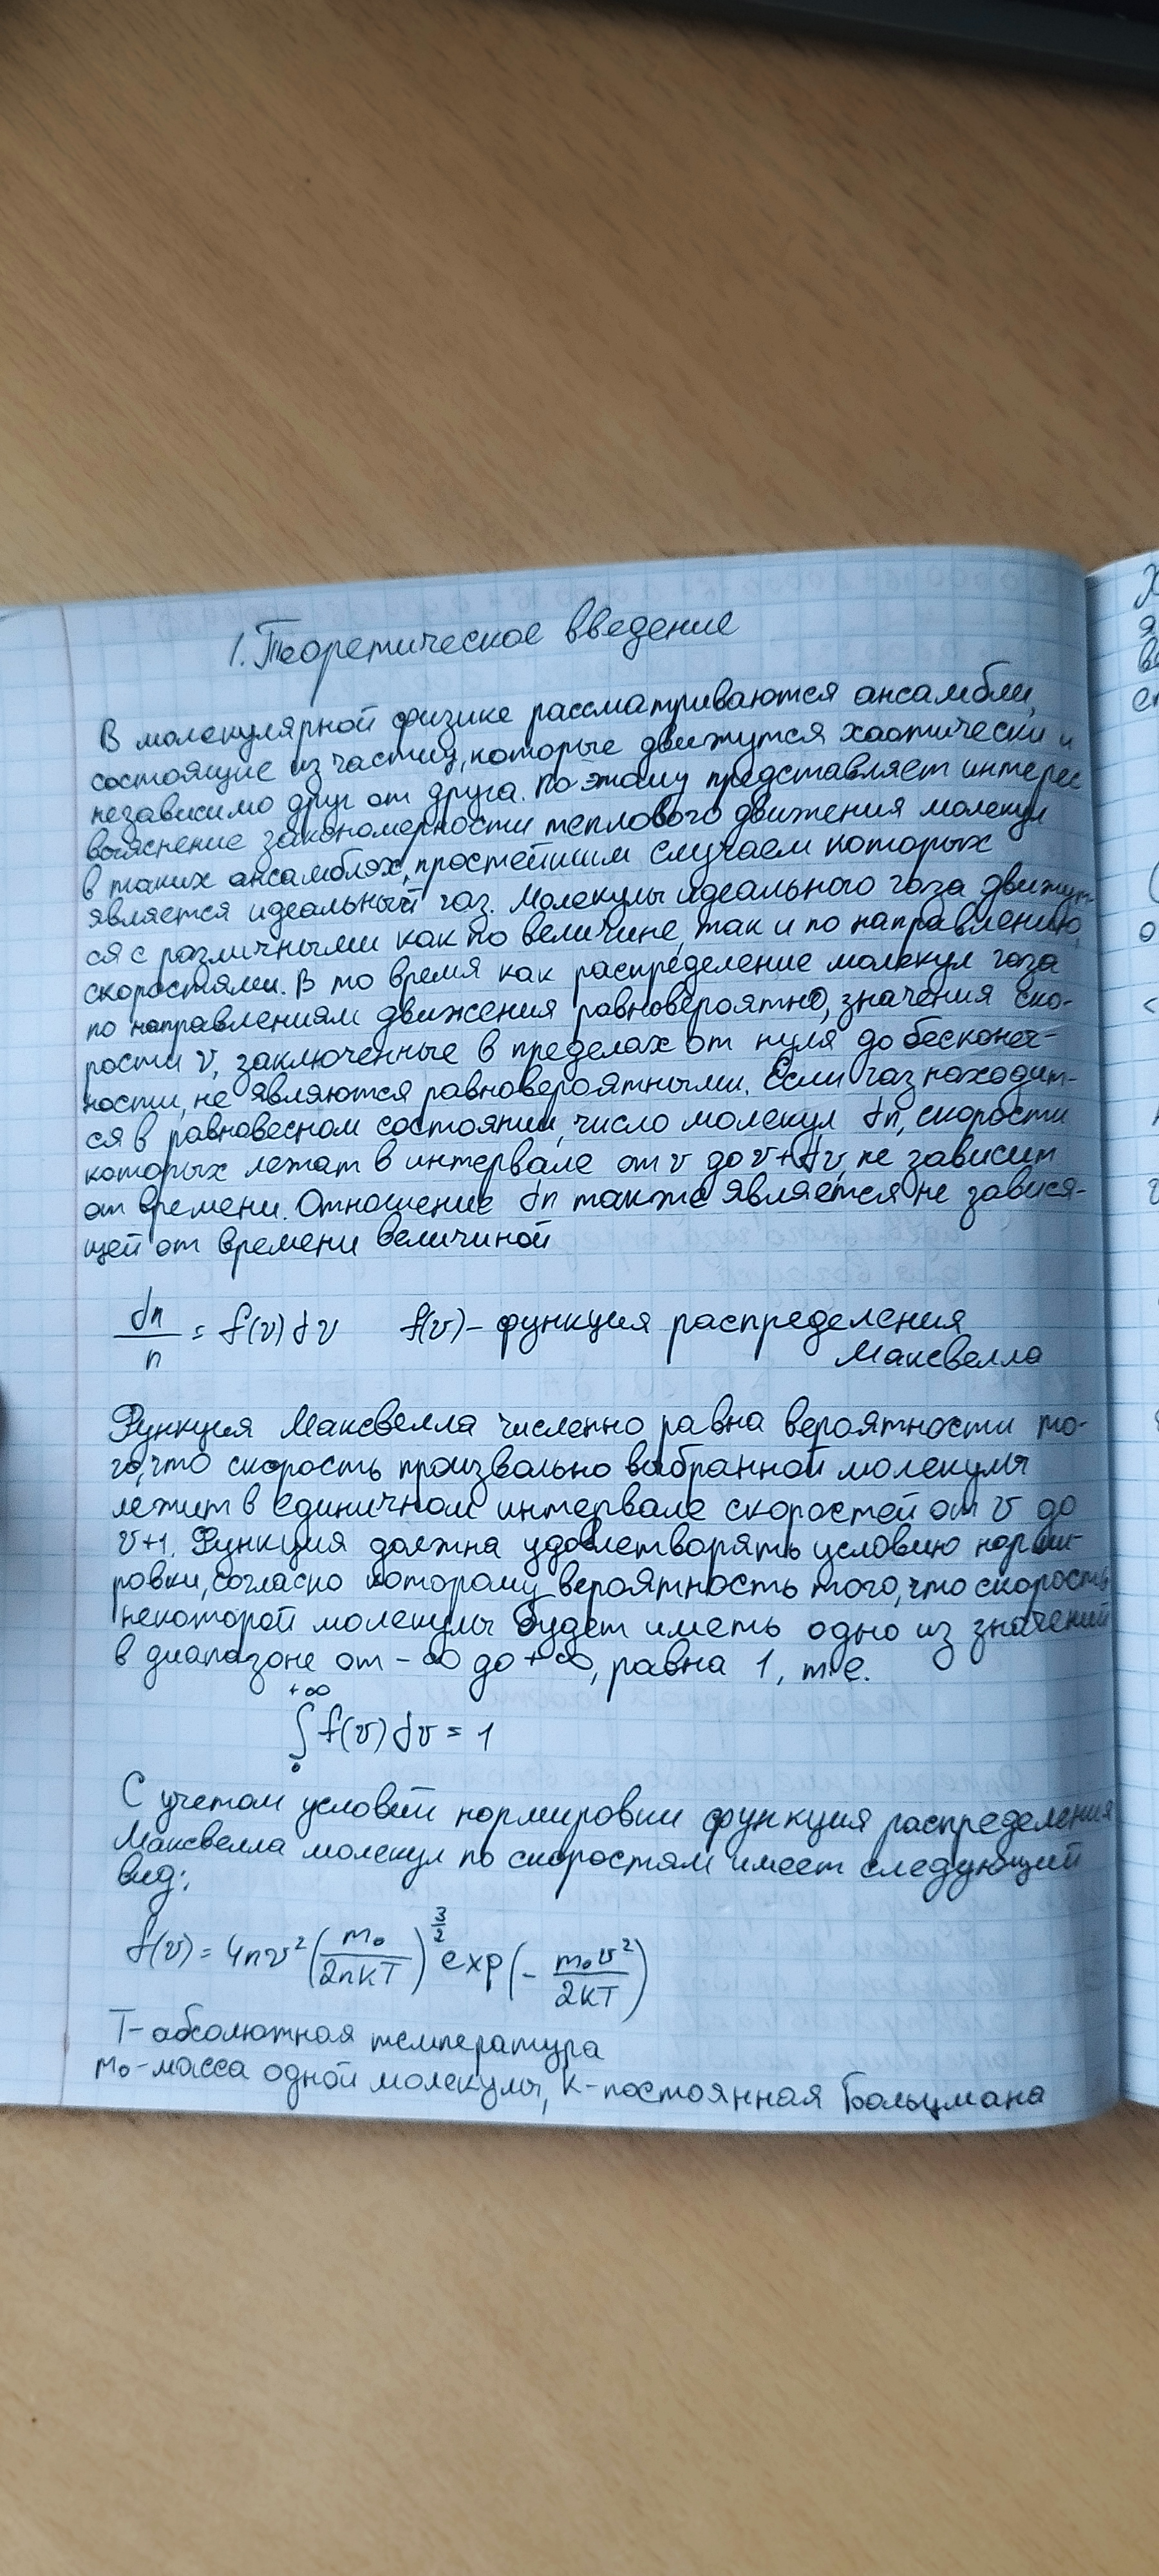 1. Теоретическое введение
В молекулярной физике рассматриваются ансамбли,
состоящие из частиц, которые движутся хаотически и
независимо друг от друга. По этому представляет интерес
выяснение закономерности теплового движения молекул
в таких ансамблях, простейшим случаем которых
является идеальный газ. Молекулы идеального газа движут-
ся с различными как по величине, так и по направлению,
скоростями. В то время как распределение молекул газа
по направлениям движения равновероятно, значения ско-
рости v, заключенные в пределах от нуля до бесконеч-
ности, не являются равновероятными. Если газ находит-
ся в равновесном состоянии, число молекул dn, скорости
которых лежат в интервале от v до v+dv, не зависит
от времени. Отношение dn также является не завися-
щей от времени величиной
dn/n = f(v)dv f(v) – функция распределения
Максвелла
Функция Максвелла численно равна вероятности то-
го, что скорость произвольно выбранной молекулы
лежит в единичном интервале скоростей от v до
v+1. Функция должна удовлетворять условию норми-
ровки, согласно которому вероятность того, что скорость
некоторой молекулы будет иметь одно из значений
в диапазоне от -∞ до +∞, равна 1, т.е.
∫₀^{+∞} f(v)dv = 1
С учетом условий нормировки функция распределения
Максвелла молекул по скоростям имеет следующий
вид:
f(v) = 4πv² (m₀/2πkT)^{3/2} exp(- m₀v²/2kT)
T – абсолютная температура
m₀ – масса одной молекулы, k – постоянная Больцмана